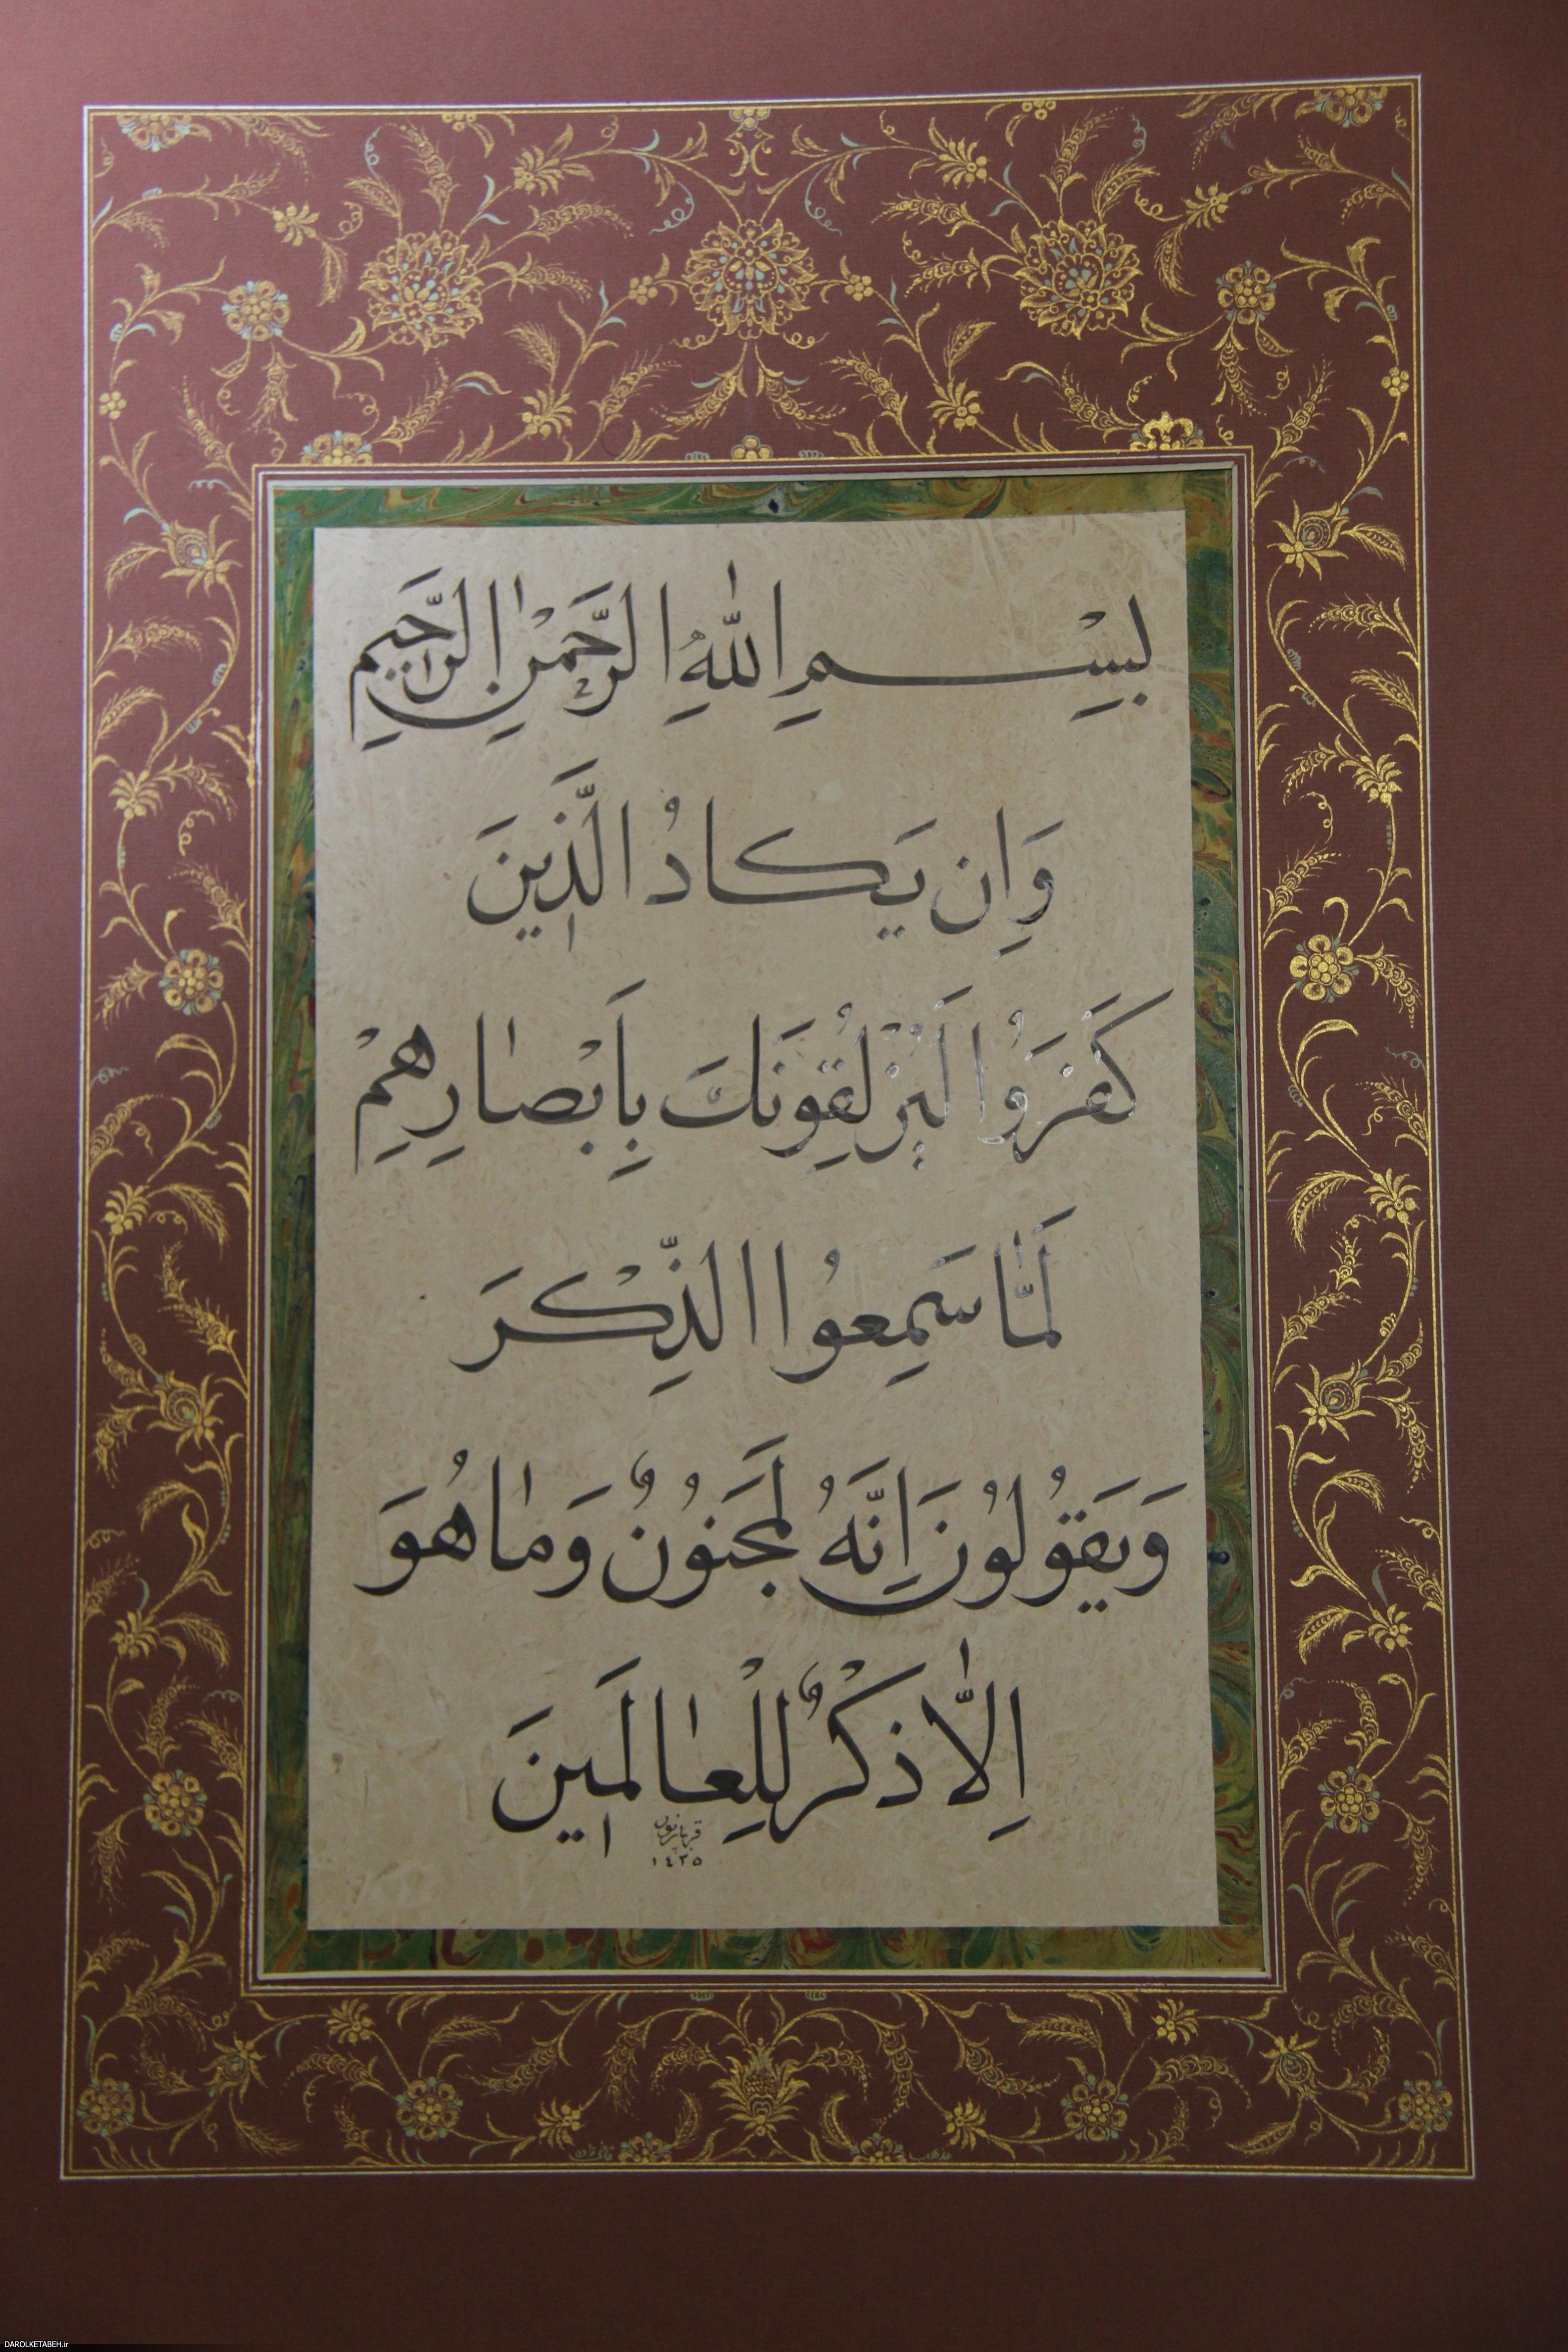 بِسْمِ اللّٰهِ الرَّحْمٰنِ الرَّحيمِ
وَاِن يَكادُ الَّذٖينَ
كَفَرُوا لَيُزْلِقُونَكَ بِاَبْصٰارِهِمْ
لَمّٰا سَمِعُوا الذِّكْرَ
وَيَقُولُونَ اِنَّهُ لَمَجْنُونٌ وَمٰا هُوَ
اِلّٰا ذِكْرٌ لِلْعٰالَمٖينَ
١٤٣٥
DAROLKETABEH.ir